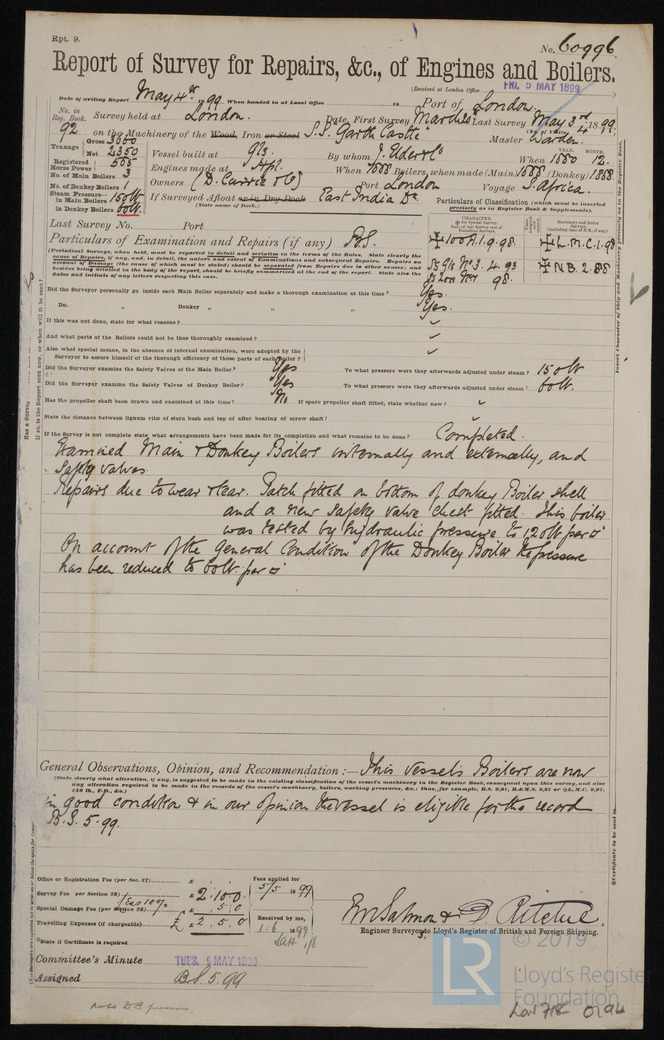 Rpt. 9.
No. 60996
Report of Survey for Repairs, &c., of Engines and Boilers.
(Received at London Office FRI. 5 MAY 1899
Date of writing Report May 4th 1899 When handed in at Local Office 18 Port of London
No. in Reg. Book. Survey held at London. Date, First Survey March 20 Last Survey May 3rd 1899
92 on the Machinery of the Wood, Iron or Steel S.S. "Garth Castle" Master Warden.
Tonnage Gross 3000
Net 2350
Vessel built at Gls. By whom J. Elder & Co When 1880 12.
Registered Horse Power 565
Engines made at When 1888 Boilers, when made (Main) 1888 (Donkey) 1888
No. of Main Boilers 3
Owners (D. Currie & Co) Port London Voyage S. Africa.
No. of Donkey Boilers 1
Steam Pressure in Main Boilers 150 lb
in Donkey Boilers 60 lb.
If Surveyed Afloat or in Dry Dock East India Dk
(State name of Dock.)
Particulars of Classification (which must be inserted precisely as in Register Book & Supplements).
Last Survey No. Port
Particulars of Examination and Repairs (if any) B.S.
100 A.1. 9.98.
L.M.C. 1.98
SS Gls No 3. 4.93
98.
N.B. 2.88
Did the Surveyor personally go inside each Main Boiler separately and make a thorough examination at this time? Yes.
Do. " Donkey " " " Yes.
If this was not done, state for what reasons?
And what parts of the Boilers could not be thus thoroughly examined?
Also what special means, in the absence of internal examination, were adopted by the
Surveyor to assure himself of the thorough efficiency of those parts of each boiler?
Did the Surveyor examine the Safety Valves of the Main Boiler? Yes To what pressure were they afterwards adjusted under steam? 150 lb
Did the Surveyor examine the Safety Valves of Donkey Boiler? Yes To what pressure were they afterwards adjusted under steam? 60 lb.
Has the propeller shaft been drawn and examined at this time? No If spare propeller shaft fitted, state whether new?
State the distance between lignum vitæ of stern bush and top of after bearing of screw shaft?
If the Survey is not complete state what arrangements have been made for its completion and what remains to be done? Completed.
Examined Main & Donkey Boilers internally and externally, and
Safety valves
Repairs due to wear & tear. Patch fitted on bottom of donkey Boiler shell
and a new safety valve chest fitted. This boiler
was tested by hydraulic pressure to 120 lb per □"
On account of the general Condition of the Donkey Boiler the pressure
has been reduced to 60 lb per □"
General Observations, Opinion, and Recommendation:— This vessels Boilers are now
(State clearly what alteration, if any, is suggested to be made in the existing classification of the vessel's machinery in the Register Book, consequent upon this survey, and also
any alteration required to be made in the records of the vessel's machinery, boilers, working pressures, &c.: thus, for example, B.S. 9,97, B.&M.S. 9,97 or L.M.C. 9,97,
140 lb., F.D., &c.)
in good condition & in our opinion the vessel is eligible for the record
B.S. 5.99.
Office or Registration Fee (per Sec. 27)
Survey Fee per Section 28) £ 2.10.0
less 10% 5.0
Special Damage Fee (per Section 28)
Travelling Expenses (if chargeable) £ 2.5.0
Fees applied for 5/5 1899
Received by me, 1.6.1899
State if Certificate is required
E.W. Salmon & D. Ritchie.
Engineer Surveyors to Lloyd's Register of British and Foreign Shipping.
Committee's Minute TUES. 9 MAY 1899
Assigned B.S. 5.99
© 2019
LR
Lloyd's Register
Foundation
Lon 718 0194